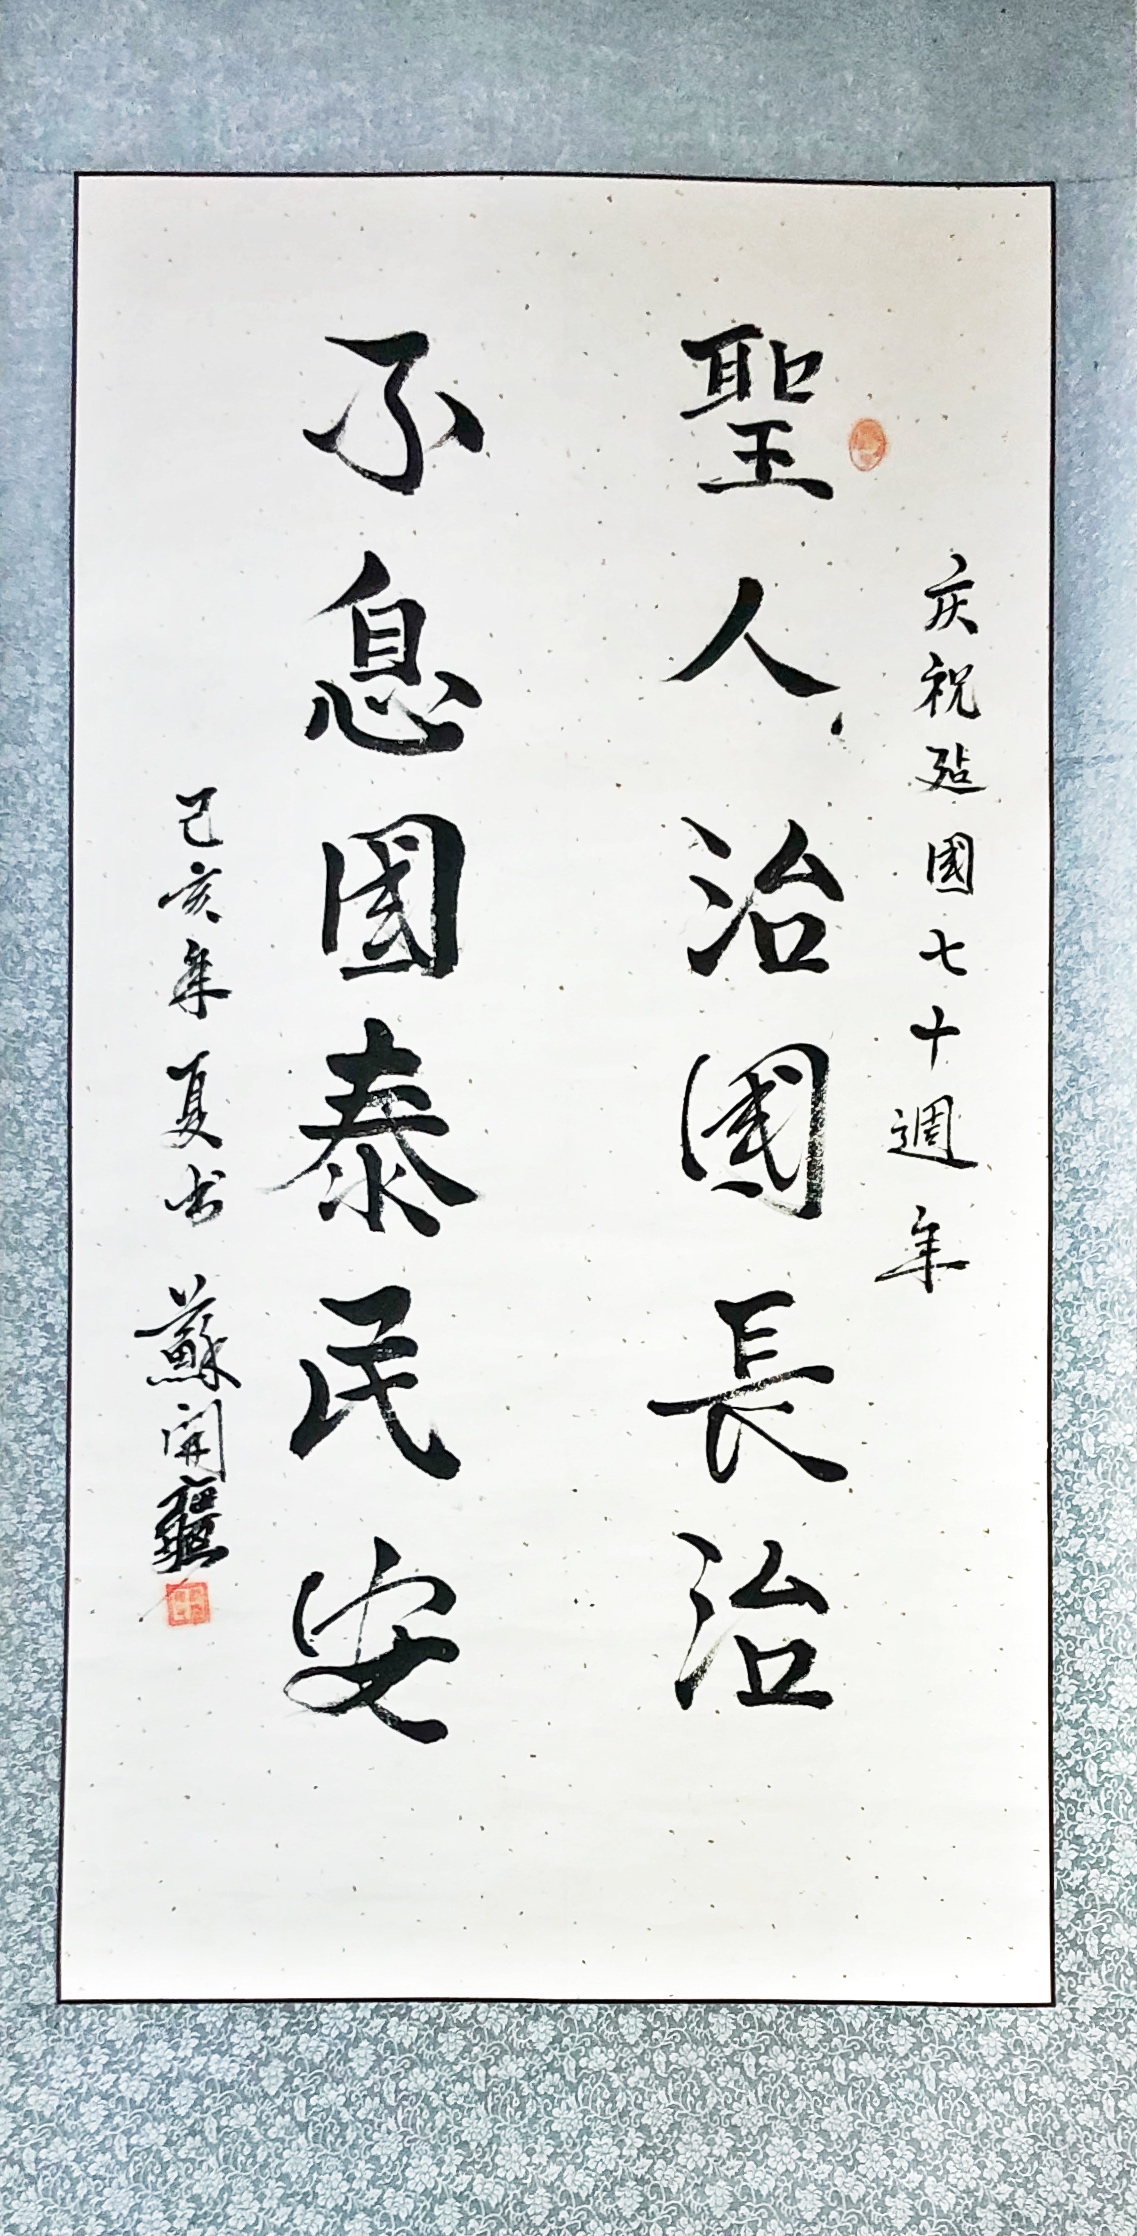 庆祝建國七十週年
聖人治國長治
不息國泰民安
己亥年夏书 蘇開疆